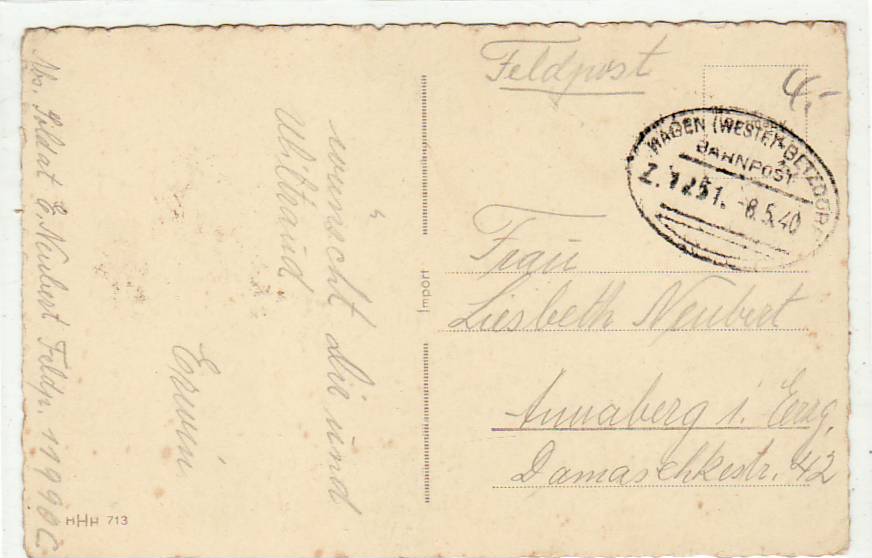 Feldpost
4.-
HAGEN (WESTF)-BETZDORF
BAHNPOST
Z. 1251. -8.5.40
Frau
Liesbeth Neubert
Annaberg i. Erzg.
Damaschkestr. 42
Import
wünscht Die und
Erwin
Abs. Soldat E. Neubert Feldp. 11990 C
HHH 713